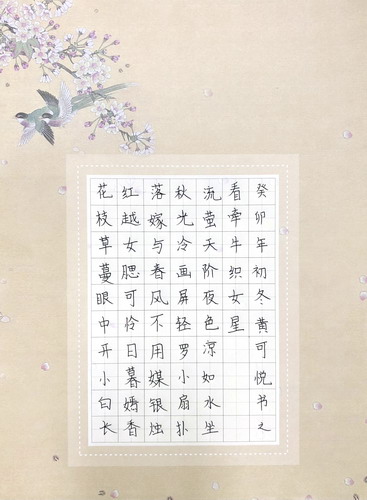 花枝草蔓眼中开小白长
红越女腮可怜日暮嫣香
落嫁与春风不用媒银烛
秋光冷画屏轻罗小扇扑
流萤天阶夜色凉如水坐
看牵牛织女星
癸卯年初冬黄可悦书之